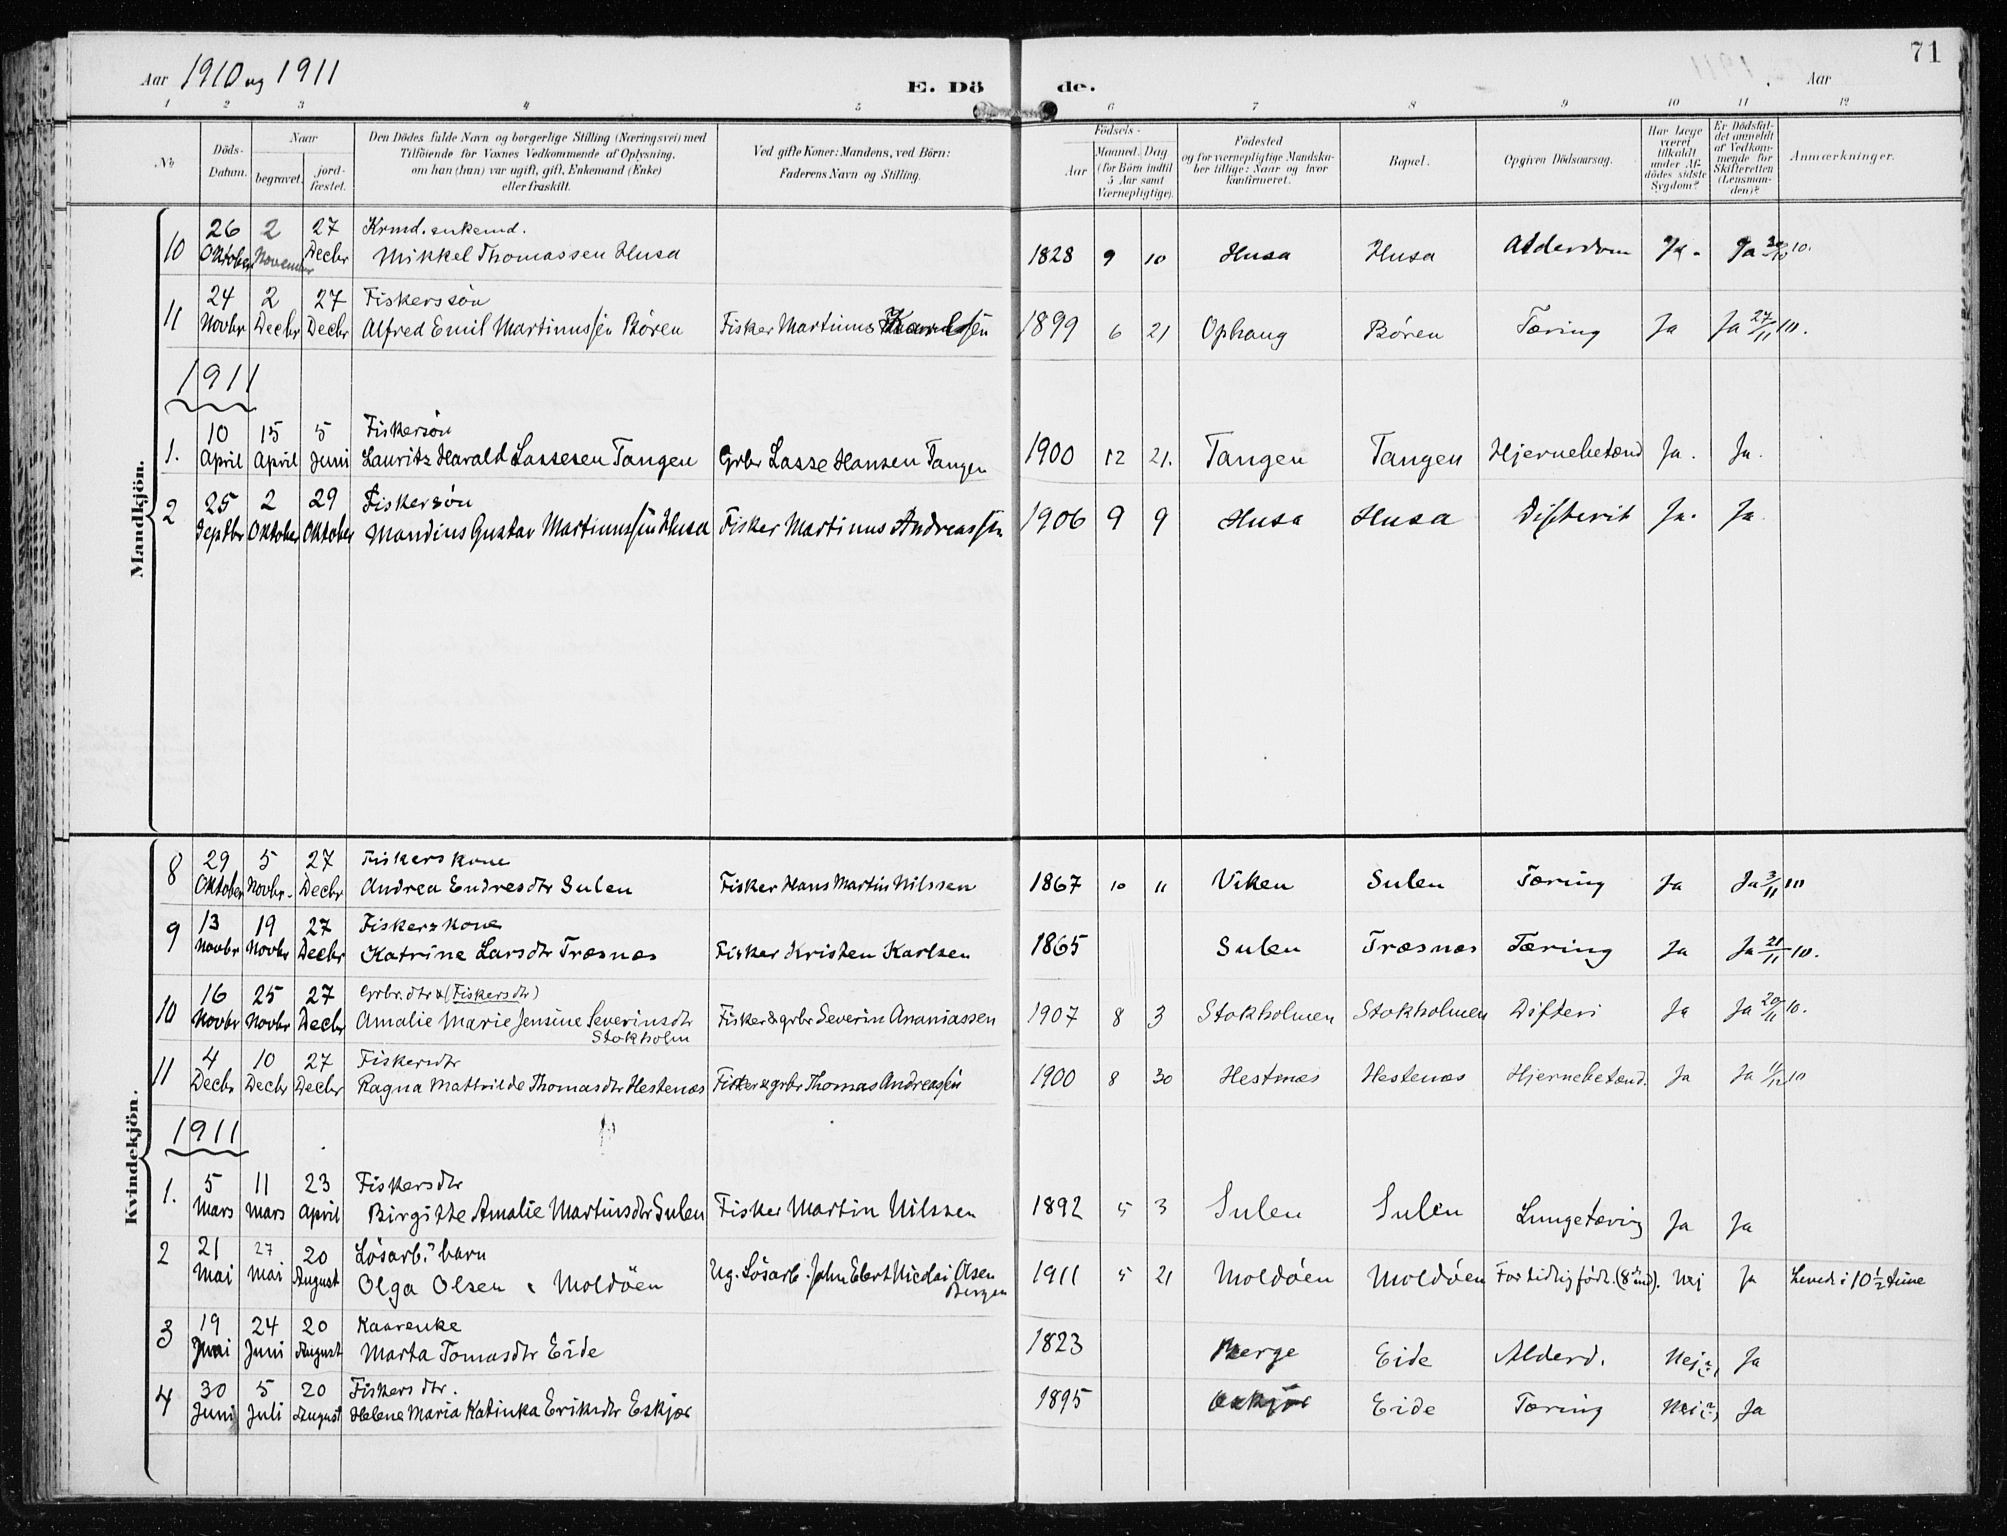 71
Aar 1910 og 1911 E. Döde. Aar
1 2 3 4 5 6 7 8 9 10 11 12
No
Döds-Datum.
Naar
begravet.
jord-fæstet.
Den Dödes fulde Navn og borgerlige Stilling (Næringsvei) med
Tilföiende for Voxnes Vedkommende af Oplysning,
om han (hun) var ugift, gift, Enkemand (Enke)
eller fraskilt.
Ved gifte Koner: Mandens, ved Börn:
Faderens Navn og Stilling.
Födsels-
Aar
Maaned. Dag
(for Börn indtil
5 Aar samt
Værnepligtige).
Födested
og for værnepligtige Mandska-
ber tillige: Naar og hvor
konfirmeret.
Bopæl.
Opgiven Dödsaarsag.
Har Læge
været
tilkaldt
under Af-
dödes sidste
Sygdom?
Er Dödsfal-
det anmeldt
af Vedkom-
mende for
Skifteretten
(Lensman-
den)?
Anmærkninger.
Mandkjön.
26 2 27 Krmd. enkemd.
10 Oktober November Decbr Mikkel Thomassen Husa 1828 9 10 Husa Husa Alderdom Ja. Ja 29/10 10.
24 2 27 Fiskerssön
11 Novbr Decbr Decbr Alfred Emil Martinussen Bören Fisker Martinus 1899 6 21 Ophaug Bören Tæring Ja Ja 27/11 10.
1911
10 15 5 Fiskersön
1. April April Juni Lauritz Harald Lassesen Tangen Grbr Lasse Hansen Tangen 1900 12 21. Tangen Tangen Hjernebetænd Ja. Ja.
25 2 29 Fiskersön
2 Septbr Oktober Oktober Mandius Gustav Martinussen Husa Fisker Martinus Andreassen 1906 9 9 Husa Husa Difterit Ja. Ja.
Kvindekjön.
29 5 27 Fiskerskone
8 Oktober Novbr. Decbr Andrea Endresdtr Sulen Fisker Hans Martin Nilssen 1867 10 11 Viken Sulen Tæring Ja Ja 3/11 10
13 19 27 Fiskerskone
9 Novbr Novbr Decbr Katrine Larsdtr Træsnæs Fisker Kristen Karlsen 1865 Sulen Træsnæs Tæring Ja Ja 21/11 10.
16 25 27 Grbr.dtr & (Fiskersdtr)
10 Novbr Novbr Decbr Amalie Marie Jensine Severinsdtr Fisker & grbr Severin Ananiassen 1907 8 3 Stokholmen Stokholmen Difteri Ja Ja 20/11 10.
Stokholm
4 10 27 Fiskersdtr
11 Decbr Decbr Decbr Ragna Mathilde Thomasdtr Hestenæs Fisker & grbr Thomas Andreassen 1900 8 30 Hestnæs Hestenæs Hjernebetænd. Ja Ja 1/12 10
1911
5 11 23 Fiskersdtr
1. Mars Mars April Birgitte Amalie Martinsdtr Sulen Fisker Martin Nilssen 1892 5 3 Sulen Sulen Lungetæring Ja Ja
21 27 20 Lösarb. barn
2 Mai Mai August Olga Olsen Moldöen Ug. Lösarb. John Ebert Nicolai Olsen Bergen 1911 5 21 Moldöen Moldöen For tidlig födt. (8 md). Nei Ja Levede i 10 1/2 time
19 24 20 Kaarenke
3 Juni Juni August Marta Tomasdtr Eide 1823 Berge Eide Alderd. Nei(?) Ja
30 5 20 Fiskersdtr.
4 Juni Juli August Helene Maria Katinka Eriksdtr Eskjær 1895 Eide Tæring Nei(?) Ja